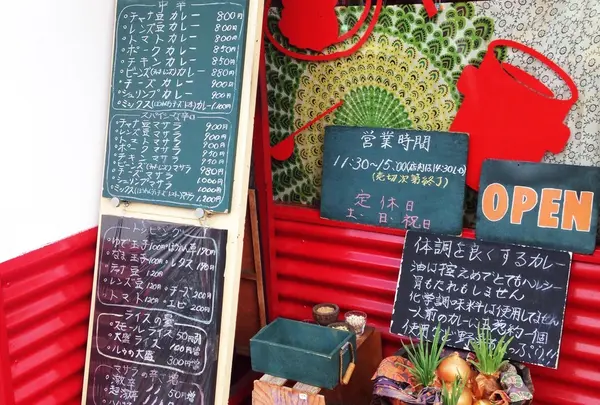 中辛
・チャナ豆カレー 800円
・レンズ豆カレー 800円
・トマトカレー 800円
・ポークカレー 850円
・チキンカレー 850円
・ビーンズカレー 880円
・チーズカレー 900円
・シュリンプカレー 900円
・ミックスカレー 1,100円
・チャナ豆マサラ 900円
・レンズ豆マサラ 900円
・トマトマサラ 900円
・ポークマサラ
・チキンマサラ
・ビーンズマサラ 980円
・チーズマサラ 1,000円
・シュリンプマサラ 1,000円
・ミックスマサラ 1,200円
トッピング
・ゆで玉子 100円
・なま玉子 100円
・レタス
・チャナ豆 120円
・レンズ豆 120円
・チーズ 200円
・トマト 120円
・エビ 200円
ライスの量
・スモールライス 50円
・大盛ライス 100円
・ルゥの大盛 300円
辛さ増
・激辛 50円
営業時間
11:30〜15:00
(売切次第終了)
定休日
土・日・祝日
OPEN
体調を良くするカレー
油は控えめでとてもヘルシー
胃もたれもしません
化学調味料は使用してません
一人前のカレーに玉ねぎ約一個
使用し